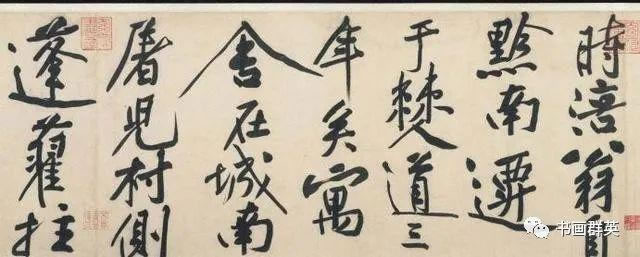 時涪翁自
黔南遷
于僰道三
年矣寓
舍在城南
屠兒村側
蓬藋拄
书画群英